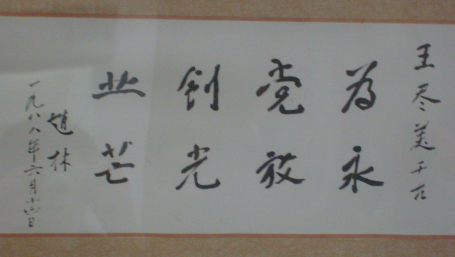 王尽美千古
为党创业
永放光芒
趙林
一九八八年六月